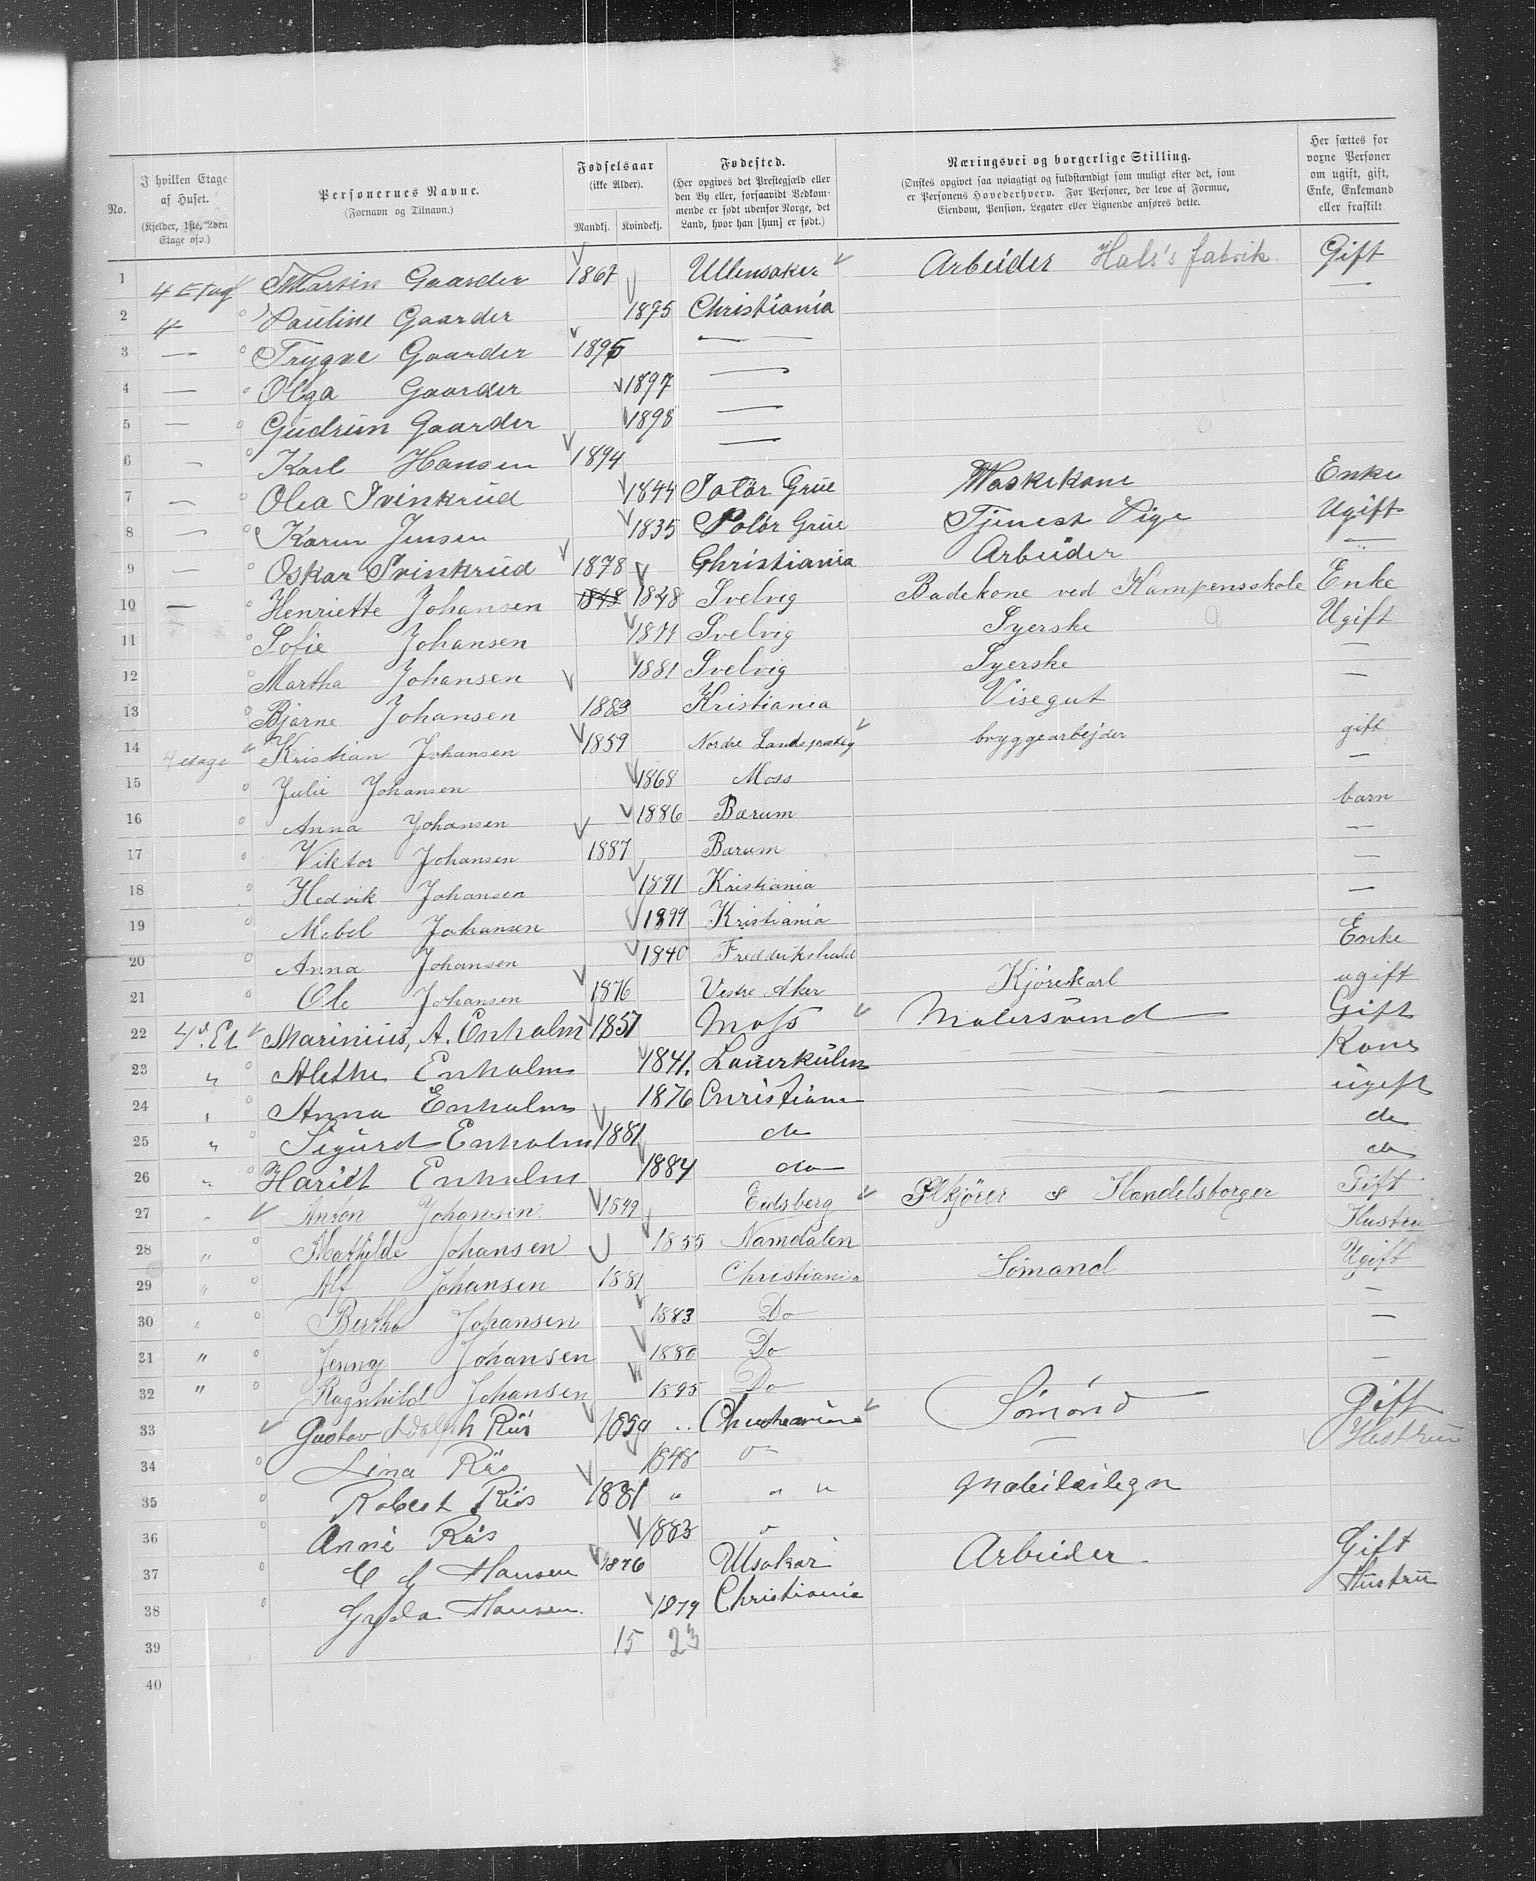 No. I hvilken Etage af Huset. (Kjelder, 1ste, 2den Etage osv.) Personernes Navne. (Fornavn og Tilnavn.) Fødselsaar (ikke Alder). Mandkj. Kvindekj. Fødested. (Her opgives det Prestegjæld eller den By eller, forsaavidt Vedkommende er født udenfor Norge, det Land, hvor han [hun] er født.) Næringsvei og borgerlige Stilling. (Ønskes opgivet saa nøiagtigt og fuldstændigt som muligt efter det, som er Personens Hovederhverv. For Personer, der leve af Formue, Eiendom, Pension, Legater eller Lignende anføres dette. Her sættes for voxne Personer om ugift, gift, Enke, Enkemand eller fraskilt
1 4 Etag Martin Gaarder 1867 Ullensaker Arbeider Hals's fabrik Gift
2 4 Pauline Gaarder 1875 Christiania —
3 — Trygve Gaarder 1895 — —
4 — Olga Gaarder 1897 —
5 — Gudrun Gaarder 1898 —
6 — Karl Hansen 1894 —
7 — Olea Svinkrud 1844 Solør Grue Waskekone Enke
8 — Karen Jensen 1835 Solør Grue Tjenest Pige Ugift
9 — Oskar Svinkrud 1878 Christiania Arbeider —
10 — Henriette Johansen 1848 1848 Svelvig Badekone ved Kampensskole Enke
11 Sofie Johansen 1877 Svelvig Syerske Ugift
12 Martha Johansen 1881 Svelvig Syerske —
13 Bjarne Johansen 1883 Kristiania Visegut —
14 4 etage Kristian Johansen 1859 Nordre Land bryggearbejder gift
15 Julie Johansen 1868 Moss —
16 Anna Johansen 1886 Barum barn
17 Viktor Johansen 1887 Barum —
18 Hedvik Johansen 1891 Kristiania —
19 Mebel Johansen 1899 Kristiania —
20 Anna Johansen 1840 Fredderikshald Enke
21 Ole Johansen 1876 Vestre Aker Kjørekarl ugift
22 4d. Et Marinius, A. Enholm 1857 Moss Malersvend Gift
23 " Alethe Enholm 1841. Laurkulen Kone
24 " Anna Enholm 1876 Christiania ugift
25 " Sigurd Enholm 1881 do do
26 " Hariet Enholm 1884 do do
27 " Anton Johansen 1849 Eidsberg Ølkjører & Handelsborger Gift
28 " Mathilde Johansen 1855 Namdalen Hustru
29 " Alf Johansen 1881 Christiania Sømand Ugift
30 " Bertha Johansen 1883 Do —
31 " Jenny Johansen 1880 Do —
32 " Ragnhild Johansen 1895 Do —
33 Gustav Adolph Riis 1859 Christiania Sømand Gift
34 Lina Riis 1848 Hustru
35 Robert Riis 1881 " " "
36 Anne Riis 1883 "
37 C J Hansen 1876 Ulsaker Arbeider. Gift
38 Gyda Hansen 1879 Christiania Hustru
39 15 23
40